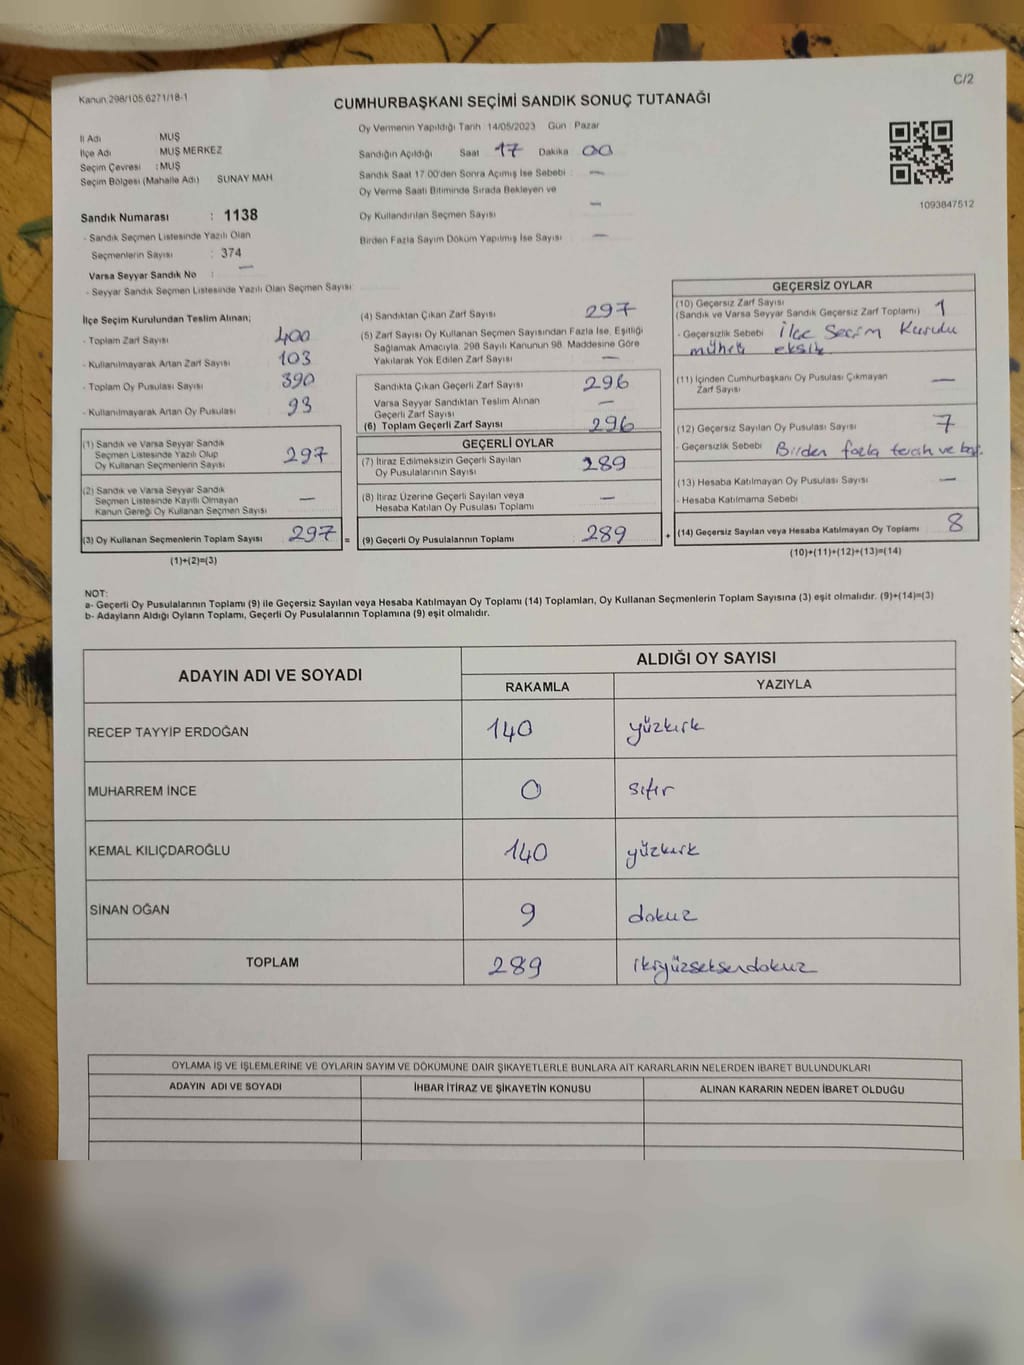 Kanun 298/105.6271/18-1
C/2
CUMHURBAŞKANI SEÇİMİ SANDIK SONUÇ TUTANAĞI
İl Adı MUŞ
İlçe Adı MUŞ MERKEZ
Seçim Çevresi : MUŞ
Seçim Bölgesi (Mahalle Adı) SUNAY MAH
Sandık Numarası : 1138
- Sandık Seçmen Listesinde Yazılı Olan
Seçmenlerin Sayısı : 374
Varsa Seyyar Sandık No : —
- Seyyar Sandık Seçmen Listesinde Yazılı Olan Seçmen Sayısı
Oy Vermenin Yapıldığı Tarih : 14/05/2023 Gün : Pazar
Sandığın Açıldığı Saat 17 Dakika 00
Sandık Saat 17.00'den Sonra Açmış İse Sebebi : —
Oy Verme Saati Bitiminde Sırada Bekleyen ve
Oy Kullandırılan Seçmen Sayısı —
Birden Fazla Sayım Döküm Yapılmış İse Sayısı —
1093847512
İlçe Seçim Kurulundan Teslim Alınan;
- Toplam Zarf Sayısı 400
- Kullanılmayarak Artan Zarf Sayısı 103
- Toplam Oy Pusulası Sayısı 390
- Kullanılmayarak Artan Oy Pusulası 93
(1) Sandık ve Varsa Seyyar Sandık
Seçmen Listesinde Yazılı Olup
Oy Kullanan Seçmenlerin Sayısı 297
(2) Sandık ve Varsa Seyyar Sandık
Seçmen Listesinde Kayıtlı Olmayan
Kanun Gereği Oy Kullanan Seçmen Sayısı —
(3) Oy Kullanan Seçmenlerin Toplam Sayısı 297 =
(1)+(2)=(3)
(4) Sandıktan Çıkan Zarf Sayısı 297
(5) Zarf Sayısı Oy Kullanan Seçmen Sayısından Fazla İse, Eşitliği
Sağlamak Amacıyla, 298 Sayılı Kanunun 98. Maddesine Göre
Yakılarak Yok Edilen Zarf Sayısı —
Sandıkta Çıkan Geçerli Zarf Sayısı 296
Varsa Seyyar Sandıktan Teslim Alınan
Geçerli Zarf Sayısı —
(6) Toplam Geçerli Zarf Sayısı 296
GEÇERLİ OYLAR
(7) İtiraz Edilmeksizin Geçerli Sayılan
Oy Pusulalarının Sayısı 289
(8) İtiraz Üzerine Geçerli Sayılan veya
Hesaba Katılan Oy Pusulası Toplamı —
(9) Geçerli Oy Pusulalarının Toplamı 289 +
GEÇERSİZ OYLAR
(10) Geçersiz Zarf Sayısı
(Sandık ve Varsa Seyyar Sandık Geçersiz Zarf Toplamı) 1
- Geçersizlik Sebebi İlçe Seçim Kurulu
mührü eksik
(11) İçinden Cumhurbaşkanı Oy Pusulası Çıkmayan
Zarf Sayısı —
(12) Geçersiz Sayılan Oy Pusulası Sayısı 7
- Geçersizlik Sebebi Birden fazla tercih ve
(13) Hesaba Katılmayan Oy Pusulası Sayısı —
- Hesaba Katılmama Sebebi
(14) Geçersiz Sayılan veya Hesaba Katılmayan Oy Toplamı 8
(10)+(11)+(12)+(13)=(14)
NOT:
a- Geçerli Oy Pusulalarının Toplamı (9) ile Geçersiz Sayılan veya Hesaba Katılmayan Oy Toplamı (14) Toplamları, Oy Kullanan Seçmenlerin Toplam Sayısına (3) eşit olmalıdır. (9)+(14)=(3)
b- Adayların Aldığı Oyların Toplamı, Geçerli Oy Pusulalarının Toplamına (9) eşit olmalıdır.
ADAYIN ADI VE SOYADI
ALDIĞI OY SAYISI
RAKAMLA YAZIYLA
RECEP TAYYİP ERDOĞAN 140 yüzkırk
MUHARREM İNCE 0 sıfır
KEMAL KILIÇDAROĞLU 140 yüzkırk
SİNAN OĞAN 9 dokuz
TOPLAM 289 ikiyüzseksendokuz
OYLAMA İŞ VE İŞLEMLERİNE VE OYLARIN SAYIM VE DÖKÜMÜNE DAİR ŞİKAYETLERLE BUNLARA AİT KARARLARIN NELERDEN İBARET BULUNDUKLARI
ADAYIN ADI VE SOYADI İHBAR İTİRAZ VE ŞİKAYETİN KONUSU ALINAN KARARIN NEDEN İBARET OLDUĞU